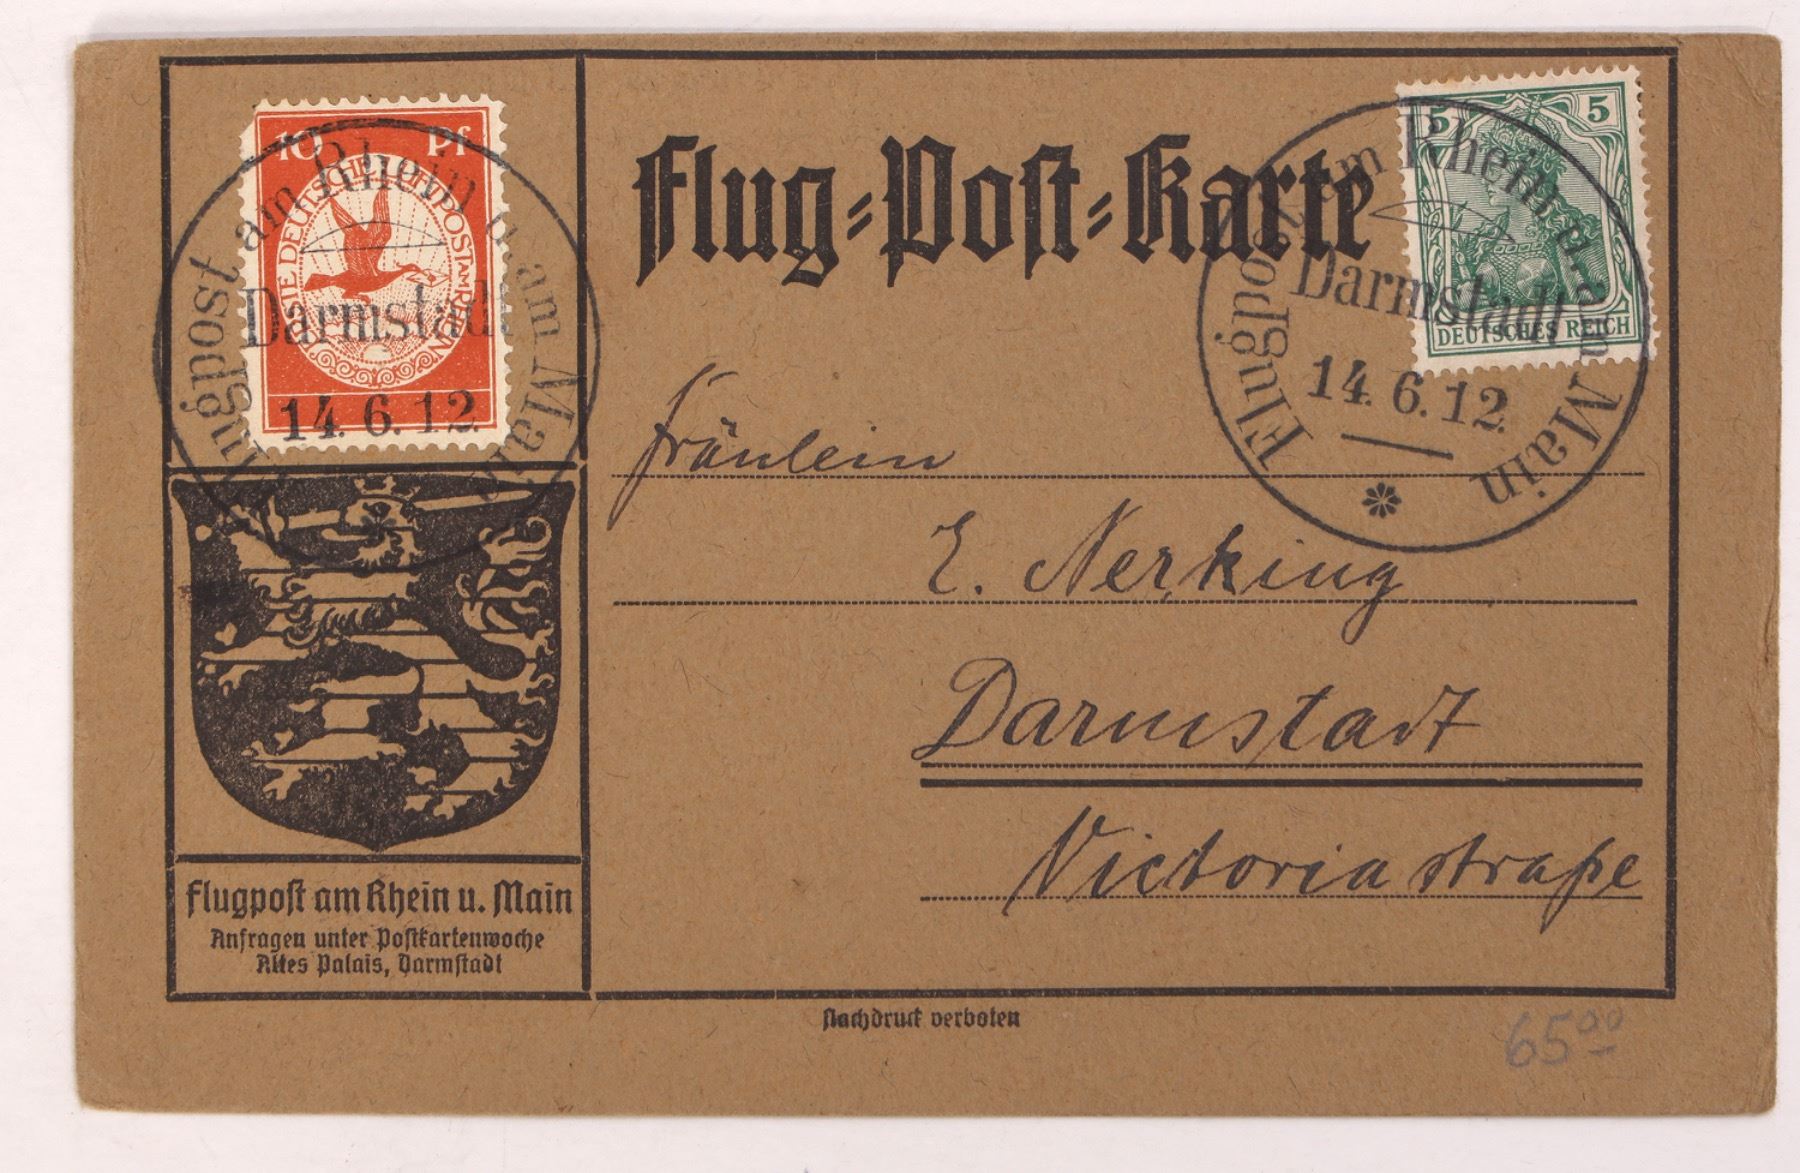 10 Pf
ERSTE DEUTSCHE LUFTPOST AM RHEIN
Flugpost am Rhein u. am Main
Darmstadt
14. 6. 12.
Flug=Post=Karte
5 5
DEUTSCHES REICH
Flugpost am Rhein u. am Main
Darmstadt
14. 6. 12.
Fräulein
E. Nerking
Darmstadt
Victoriastraße
Flugpost am Rhein u. Main
Anfragen unter Postkartenwoche
Altes Palais, Darmstadt
Nachdruck verboten
65⁰⁰